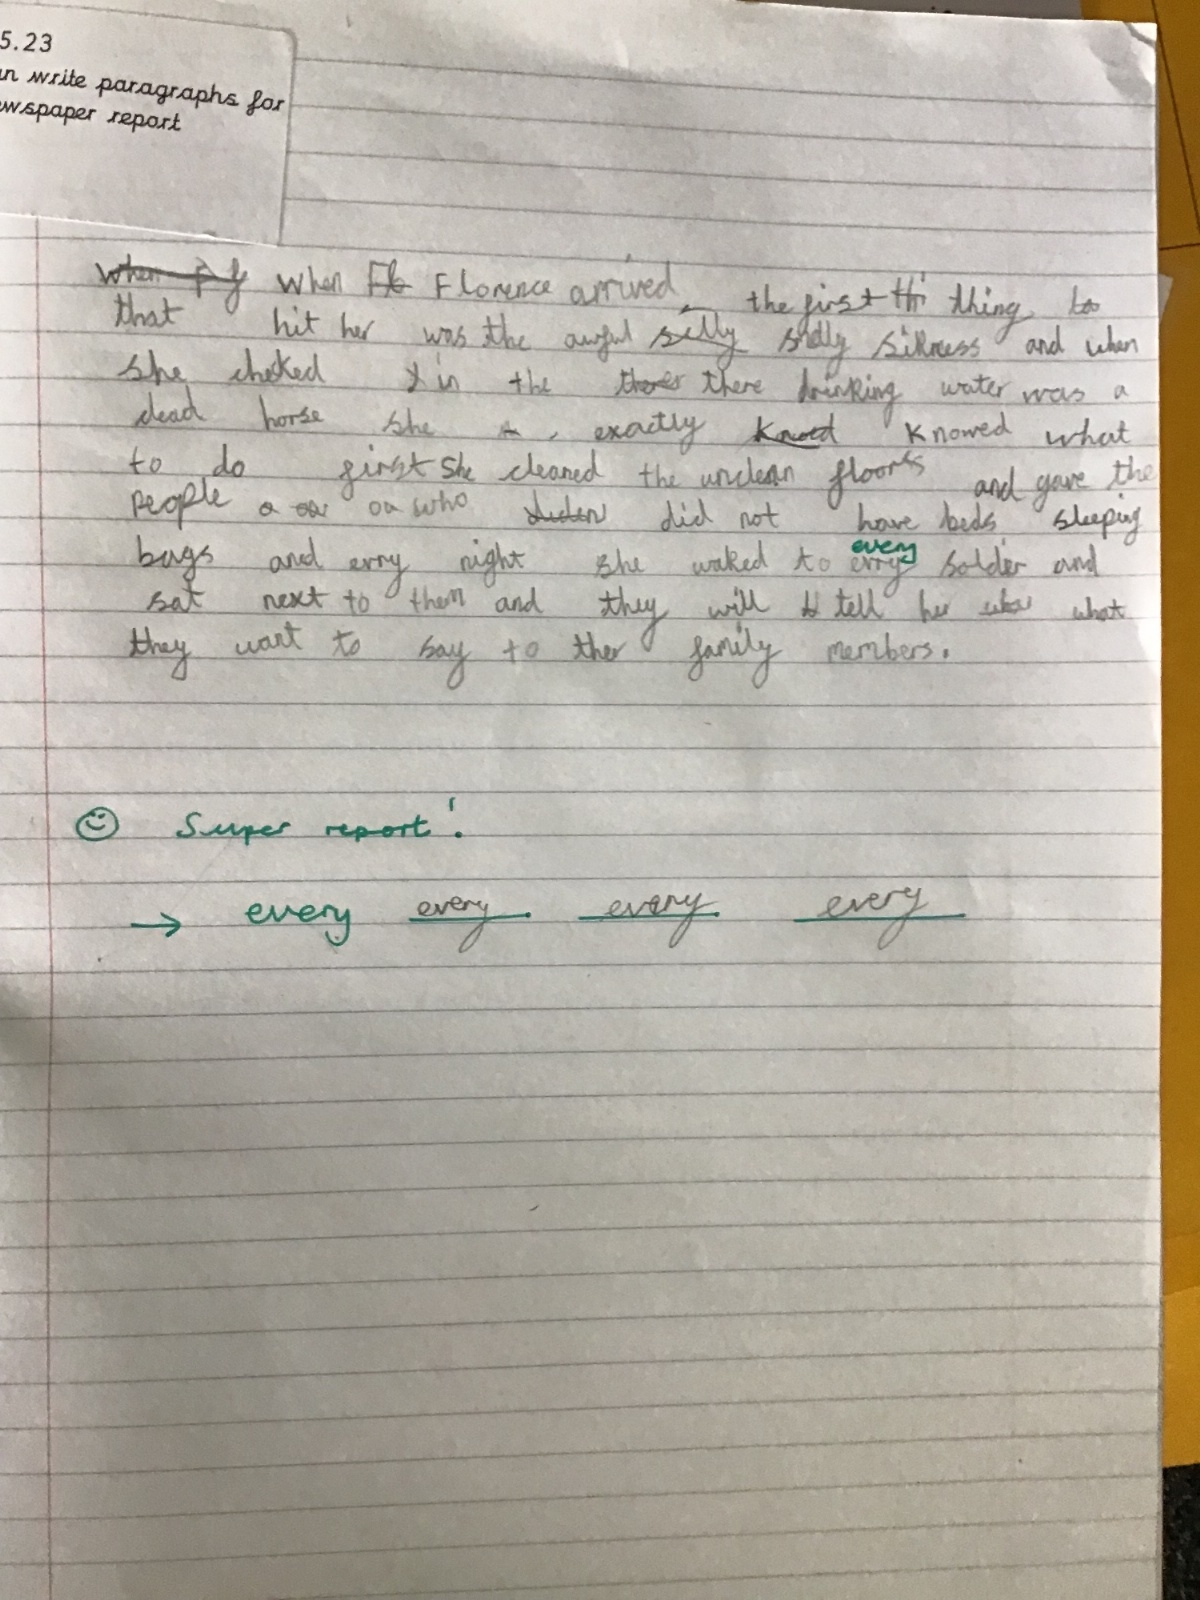 5.23
n write paragraphs for
wspaper report
When F f When Flo Florence arrived the first thi thing to
that hit her was the awful selly sidly sikness and when
she checked in the there there drinking water was a
dead horse she exactly Knoed Knowed what
to do first she cleaned the unclean floors and gave the
people who did not have beds sleeping
bags and erry night she waked to erry every solder and
sat next to them and they will tell her what
they want to say to ther family members.
Super report!
→ every every every every